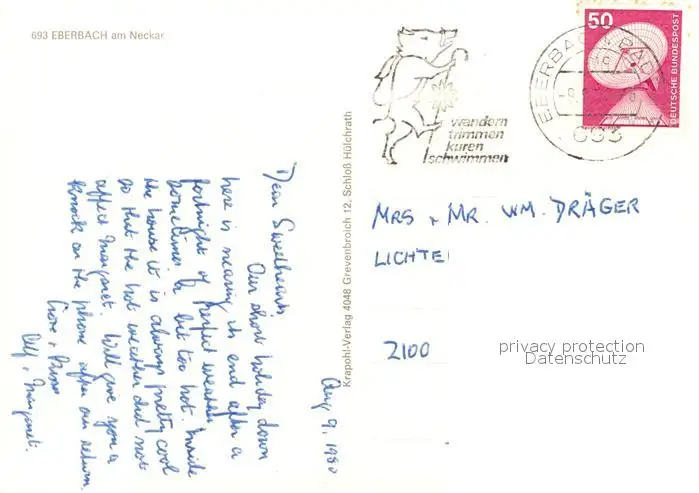 693 EBERBACH am Neckar
Aug 9, 1980
Dear Sweethearts,
Our short holiday down
here is nearing its end after a
fortnight of perfect weather
Sometimes a bit too hot. Inside
the house it is always pretty cool
so that the hot weather did not
affect Margaret. Will give you a
knock on the phone after our return.
Love +
Alf + Margaret.
Krapohl-Verlag 4048 Grevenbroich 12, Schloß Hülchrath
wandern
trimmen
kuren
schwimmen
EBERBACH
693
50
DEUTSCHE BUNDESPOST
MRS + MR. WM. DRÄGER
LICHTE
2100
privacy protection
Datenschutz